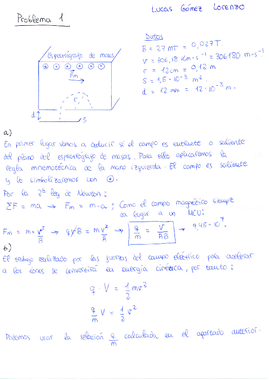 Lucas Gómez Lorenzo
Problema 1
Datos
Espectrógrafo de masas
B = 27 mT = 0,027 T
Fm
r = 12 cm = 0,12 m
d
S
a)
En primer lugar vamos a deducir si el campo es entrante o saliente
del plano del espectrógrafo de masas. Para ello aplicaremos la
regla mnemotécnica de la mano izquierda. El campo es saliente
y lo simbolizaremos con ⊙.
Por la 2ª ley de Newton:
ΣF = ma → Fm = m·an ; Como el campo magnético siempre
da lugar a un MCU:
b)
El trabajo realizado por las fuerzas del campo eléctrico para acelerar
a los iones se convertirá en energía cinética, por tanto:
q · V = 1/2 mv²
q/m V = 1/2 v²
Podemos usar la relación q/m calculada en el apartado anterior.